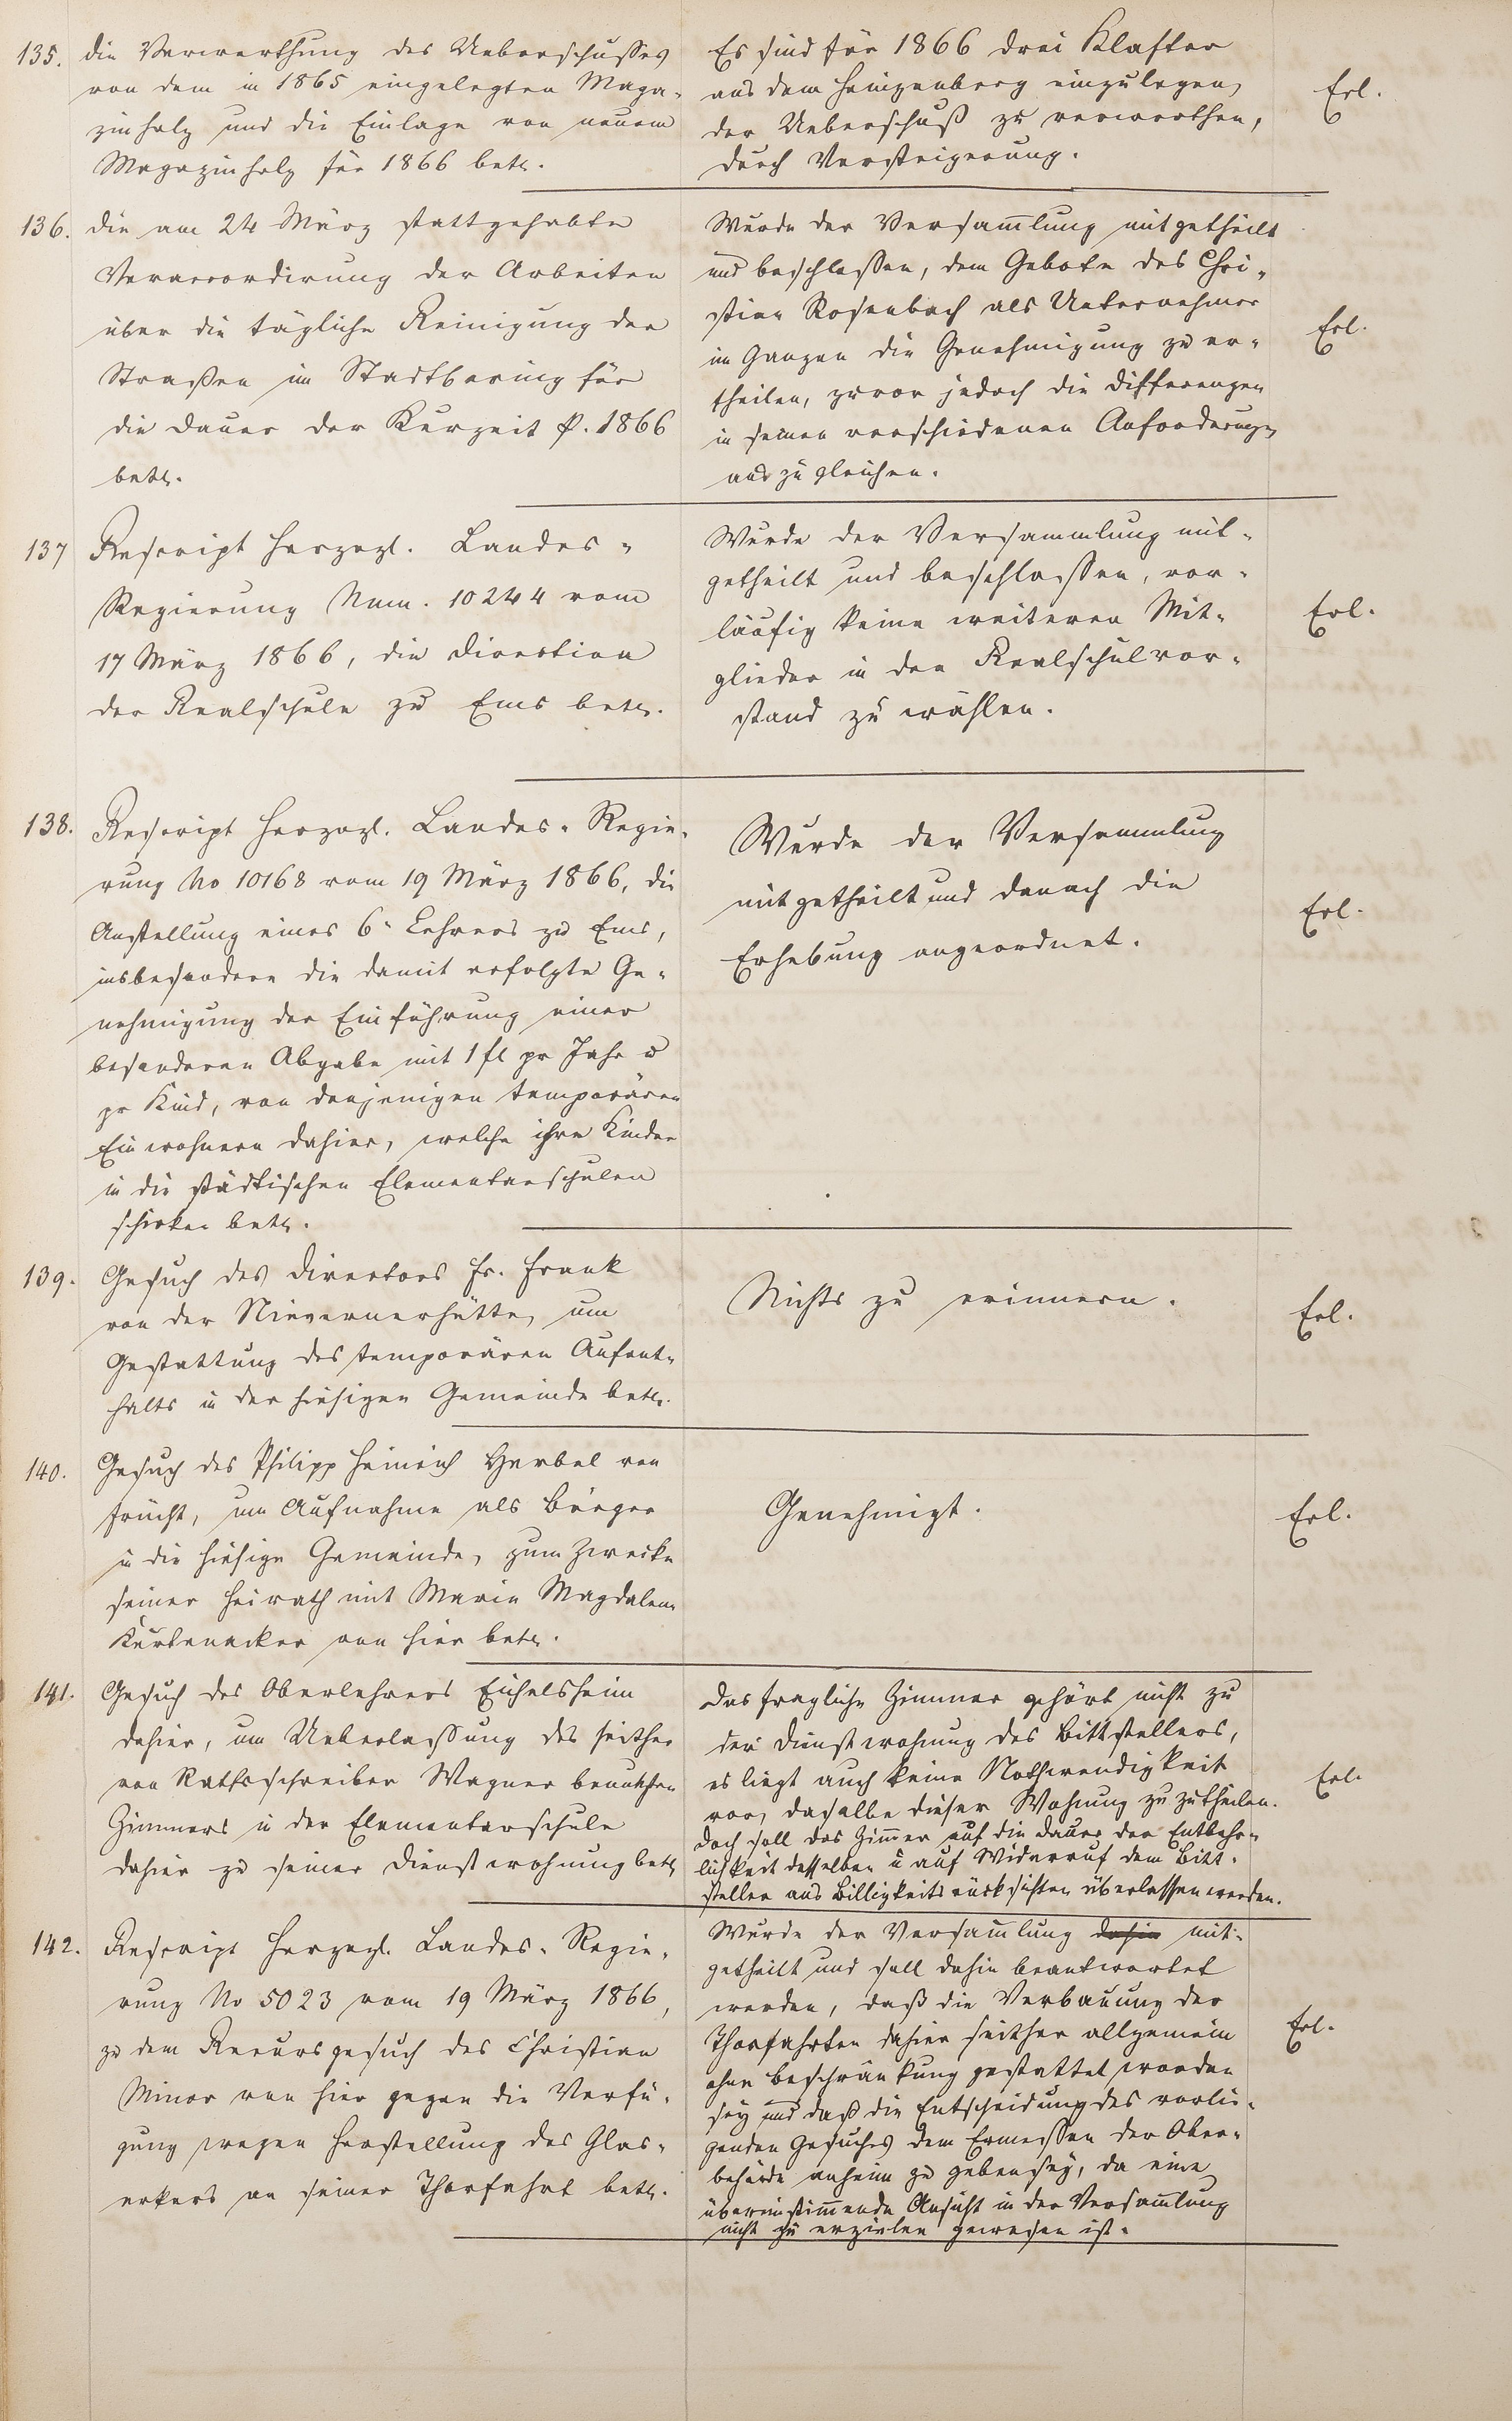 135.
die Verwerthung des Ueberschusses
von dem in 1865 eingelegten Maga-
zinholz und die Einlage von neuem
Magazinholz für 1866 betr.
Es sind für 1866 drei Klafter
aus dem Heinzenberg einzulegen,
der Ueberschuß zu verwerthen,
durch Versteigerung.
Erl.
136.
die am 24 März stattgehabte
Veraccordirung der Arbeiten
über die tägliche Reinigung der
Straßen im Stadtbering für
die Dauer der Kurzeit p. 1866
betr.
Wurde der Versam̅lung mitgetheilt
und beschlossen, dem Gebote des Chri-
stian Rosenbach als Unternehmer
im Ganzen die Genehmigung zu er-
theilen, zuvor jedoch die Differenzen
in seinen verschiedenen Anforderungen
auszugleichen.
Erl.
137
Rescript Herzogl. Landes-
Regierung Num. 10244 vom
17 März 1866, die Direction
der Realschule zu Ems betr.
Wurde der Versammlung mit-
getheilt und beschlossen, vor-
läufig keine weiteren Mit-
glieder in den Realschulvor-
stand zu wählen.
Erl.
138.
Rescript Herzogl. Landes-Regie-
rung No 10168 vom 19 März 1866, die
Anstellung eines 6n Lehrers zu Ems,
insbesondere die damit erfolgte Ge-
nehmigung der Einführung einer
besonderen Abgabe mit 1 fl pr Jahr u
pr Kind, von denjenigen temporären
Einwohnern dahier, welche ihre Kinder
in die städtischen Elementarschulen
schicken betr.
Wurde der Versammlung
mitgetheilt und danach die
Erhebung angeordnet.
Erl.
139.
Gesuch des Directors Fr. Frank
von der Nievernerhütte, um
Gestattung des temporären Aufent-
halts in der hiesigen Gemeinde betr.
Nichts zu erinnern.
Erl.
140.
Gesuch des Philipp Heinrich Herbel von
Frücht, um Aufnahme als Bürger
in die hiesige Gemeinde, zum Zwecke
seiner Heirath mit Marie Magdalene
Kurtenacker von hier betr.
Genehmigt.
Erl.
141.
Gesuch des Oberlehrers Eichelsheim
dahier, um Ueberlassung des seither
von Rathsschreiber Wagner benutzten
Zimmers in der Elementarschule
dahier zu seiner Dienstwohnung betr
Das fragliche Zimmer gehört nicht zu
der Dienstwohnung des Bittstellers,
es liegt auch keine Nothwendigkeit
vor, dasselbe dieser Wohnung zuzutheilen.
Doch soll das Zim̅er auf die Dauer der Entbehr-
lichkeit desselben u auf Widerruf dem Bitt-
steller aus Billigkeitsrücksichten überlassen werden.
Erl.
142.
Rescript Herzogl. Landes-Regie-
rung No 5023 vom 19 März 1866,
zu dem Recursgesuch des Christian
Minor von hier gegen die Verfü-
gung wegen Herstellung des Glas-
erkers an seiner Thorfahrt betr.
Wurde der Versam̅lung dahin mit-
getheilt und soll dahin beantwortet
werden, daß die Verbauung der
Thorfahrten dahier seither allgemein
ohne Beschränkung gestattet worden
sey und daß die Entscheidung des vorlie-
genden Gesuches dem Ermessen der Ober-
behörde anheim zu geben sey, da eine
übereinstim̅ende Ansicht in der Versam̅lung
nicht zu erzielen gewesen ist.
Erl.